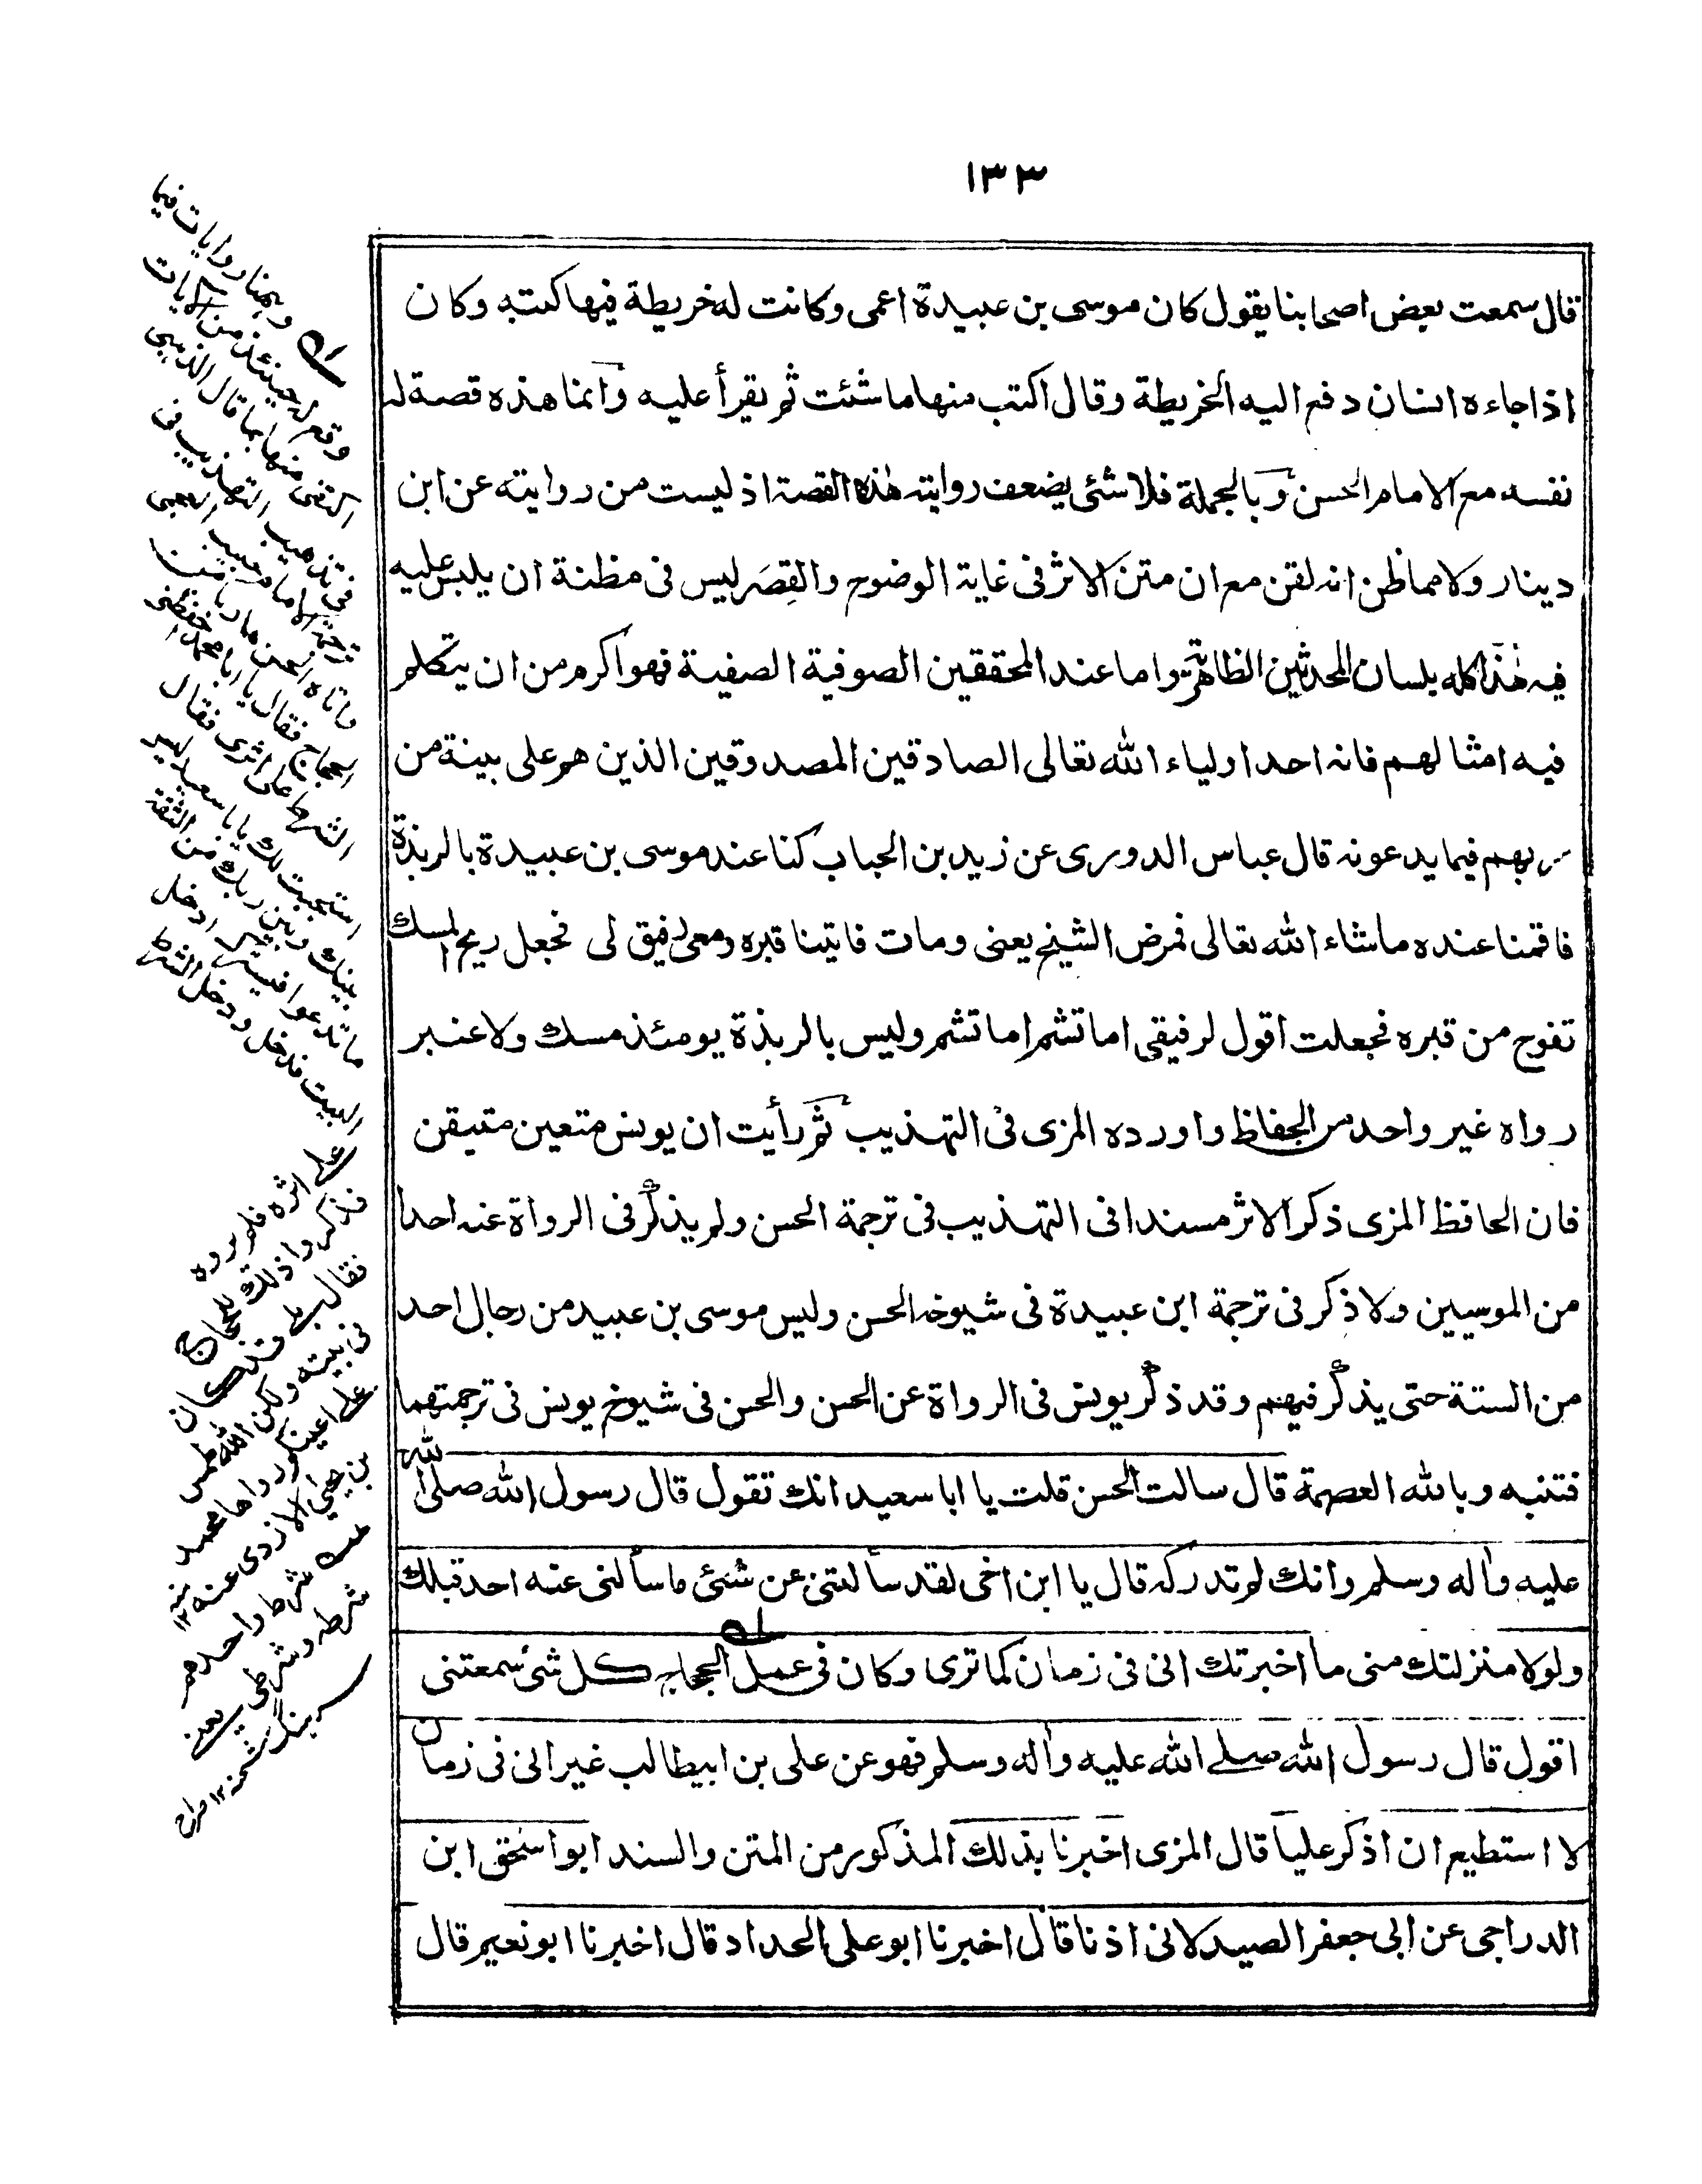 ١٣٣
قال سمعت بعض اصحابنا يقول كان موسى بن عبيدة اعمى وكانت له خريطة فيها كتبه وكان
اذا جاءه انسان دفع اليه الخريطة وقال اكتب منها ما شئت ثم يقرأ عليه وانما هذه قصة له
نفسه مع الامام الحسن وبالجملة فلا شئ يضعف روايته هذه القصة اذ ليست من روايته عن ابن
دينار ولا مما ظن انه لقن مع ان متن الاثر فى غاية الوضوح والقصر ليس فى مظنة ان يلبس عليه
فيه هذا كله بلسان المحدثين الظاهرية واما عند المحققين الصوفية الصفية فهو اكرم من ان يتكلم
فيه امثالهم فانه احد اولياء الله تعالى الصادقين المصدوقين الذين هم على بينة من
ربهم فيما يدعونه قال عباس الدورى عن زيد بن الحباب كنا عند موسى بن عبيدة بالربذة
فاقمنا عنده ما شاء الله تعالى فمرض الشيخ يعنى ومات فاتينا قبره ومعى رفيق لى فجعل ريح المسك
تفوح من قبره فجعلت اقول لرفيقى اما تشم اما تشم وليس بالربذة يومئذ مسك ولا عنبر
رواه غير واحد من الحفاظ واورده المزى فى التهذيب ثم رأيت ان يونس متعين متيقن
فان الحافظ المزى ذكر الاثر مسندا فى التهذيب فى ترجمة الحسن ولم يذكر فى الرواة عنه احدا
من الموسيين ولا ذكر فى ترجمة ابن عبيدة فى شيوخه الحسن وليس موسى بن عبيد من رجال احد
من الستة حتى يذكر فيهم وقد ذكر يونس فى الرواة عن الحسن والحسن فى شيوخ يونس فى ترجمتهما
فتنبه وبالله العصمة قال سالت الحسن قلت يا ابا سعيد انك تقول قال رسول الله صلى الله
عليه وآله وسلم وانك لم تدركه قال يا ابن اخى لقد سألتنى عن شئ ما سألنى عنه احد قبلك
ولولا منزلتك منى ما اخبرتك انى فى زمان كما ترى وكان فى عمل الحجاج كل شئ سمعتنى
اقول قال رسول الله صلى الله عليه وآله وسلم فهو عن على بن ابيطالب غير انى فى زمان
لا استطيع ان اذكر عليا قال المزى اخبرنا بذلك المذكور من المتن والسند ابو اسحق ابن
الدراجى عن ابى جعفر الصيدلانى اذنا قال اخبرنا ابو على الحداد قال اخبرنا ابو نعيم قال
له وبهنا روايات فيما
وقع له حينئذ من الآيات
اكتفى منها بما قال الذهبى
فى تذهيب التهذيب فى
ترجمة الامام حبيب العجمى
الحجاج فقال يا ابا محمد احفظنى
الشرط على اثرى فقال
استحييت لك يا با سعيد ليس
بينك وبين ربك من الثقة
ما تدعو فيسترك ادخل
البيت فدخل ودخل الشرط
على اثره فلم يروه
فذكروا ذلك للحجاج
فقال بلى قد كان
فى بيته ولكن الله طمس
على اعينكم رواها محمد
الازدى عنه ١٢ منه
شرط واحدهم
شرطه وشرطى يعنى
سرہنگ شحنه ١٢ صراح